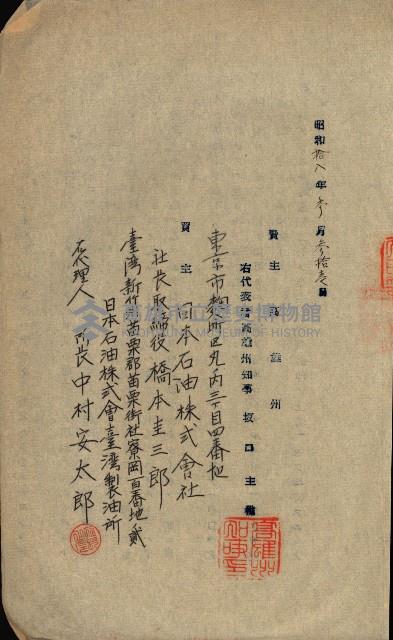 昭和拾八年參月參拾壱日
賣主 高雄州
右代表者高雄州知事 坂口主税
東京市麹町区丸ノ内三丁目四番地
買主 日本石油株式會社
社長取締役 橋本圭三郎
臺湾新竹州苗栗郡苗栗街社寮岡百番地貳
日本石油株式會社臺湾製油所
右代理人 所長 中村安太郎
高雄市立歷史博物館
KAOHSIUNG MUSEUM OF HISTORY